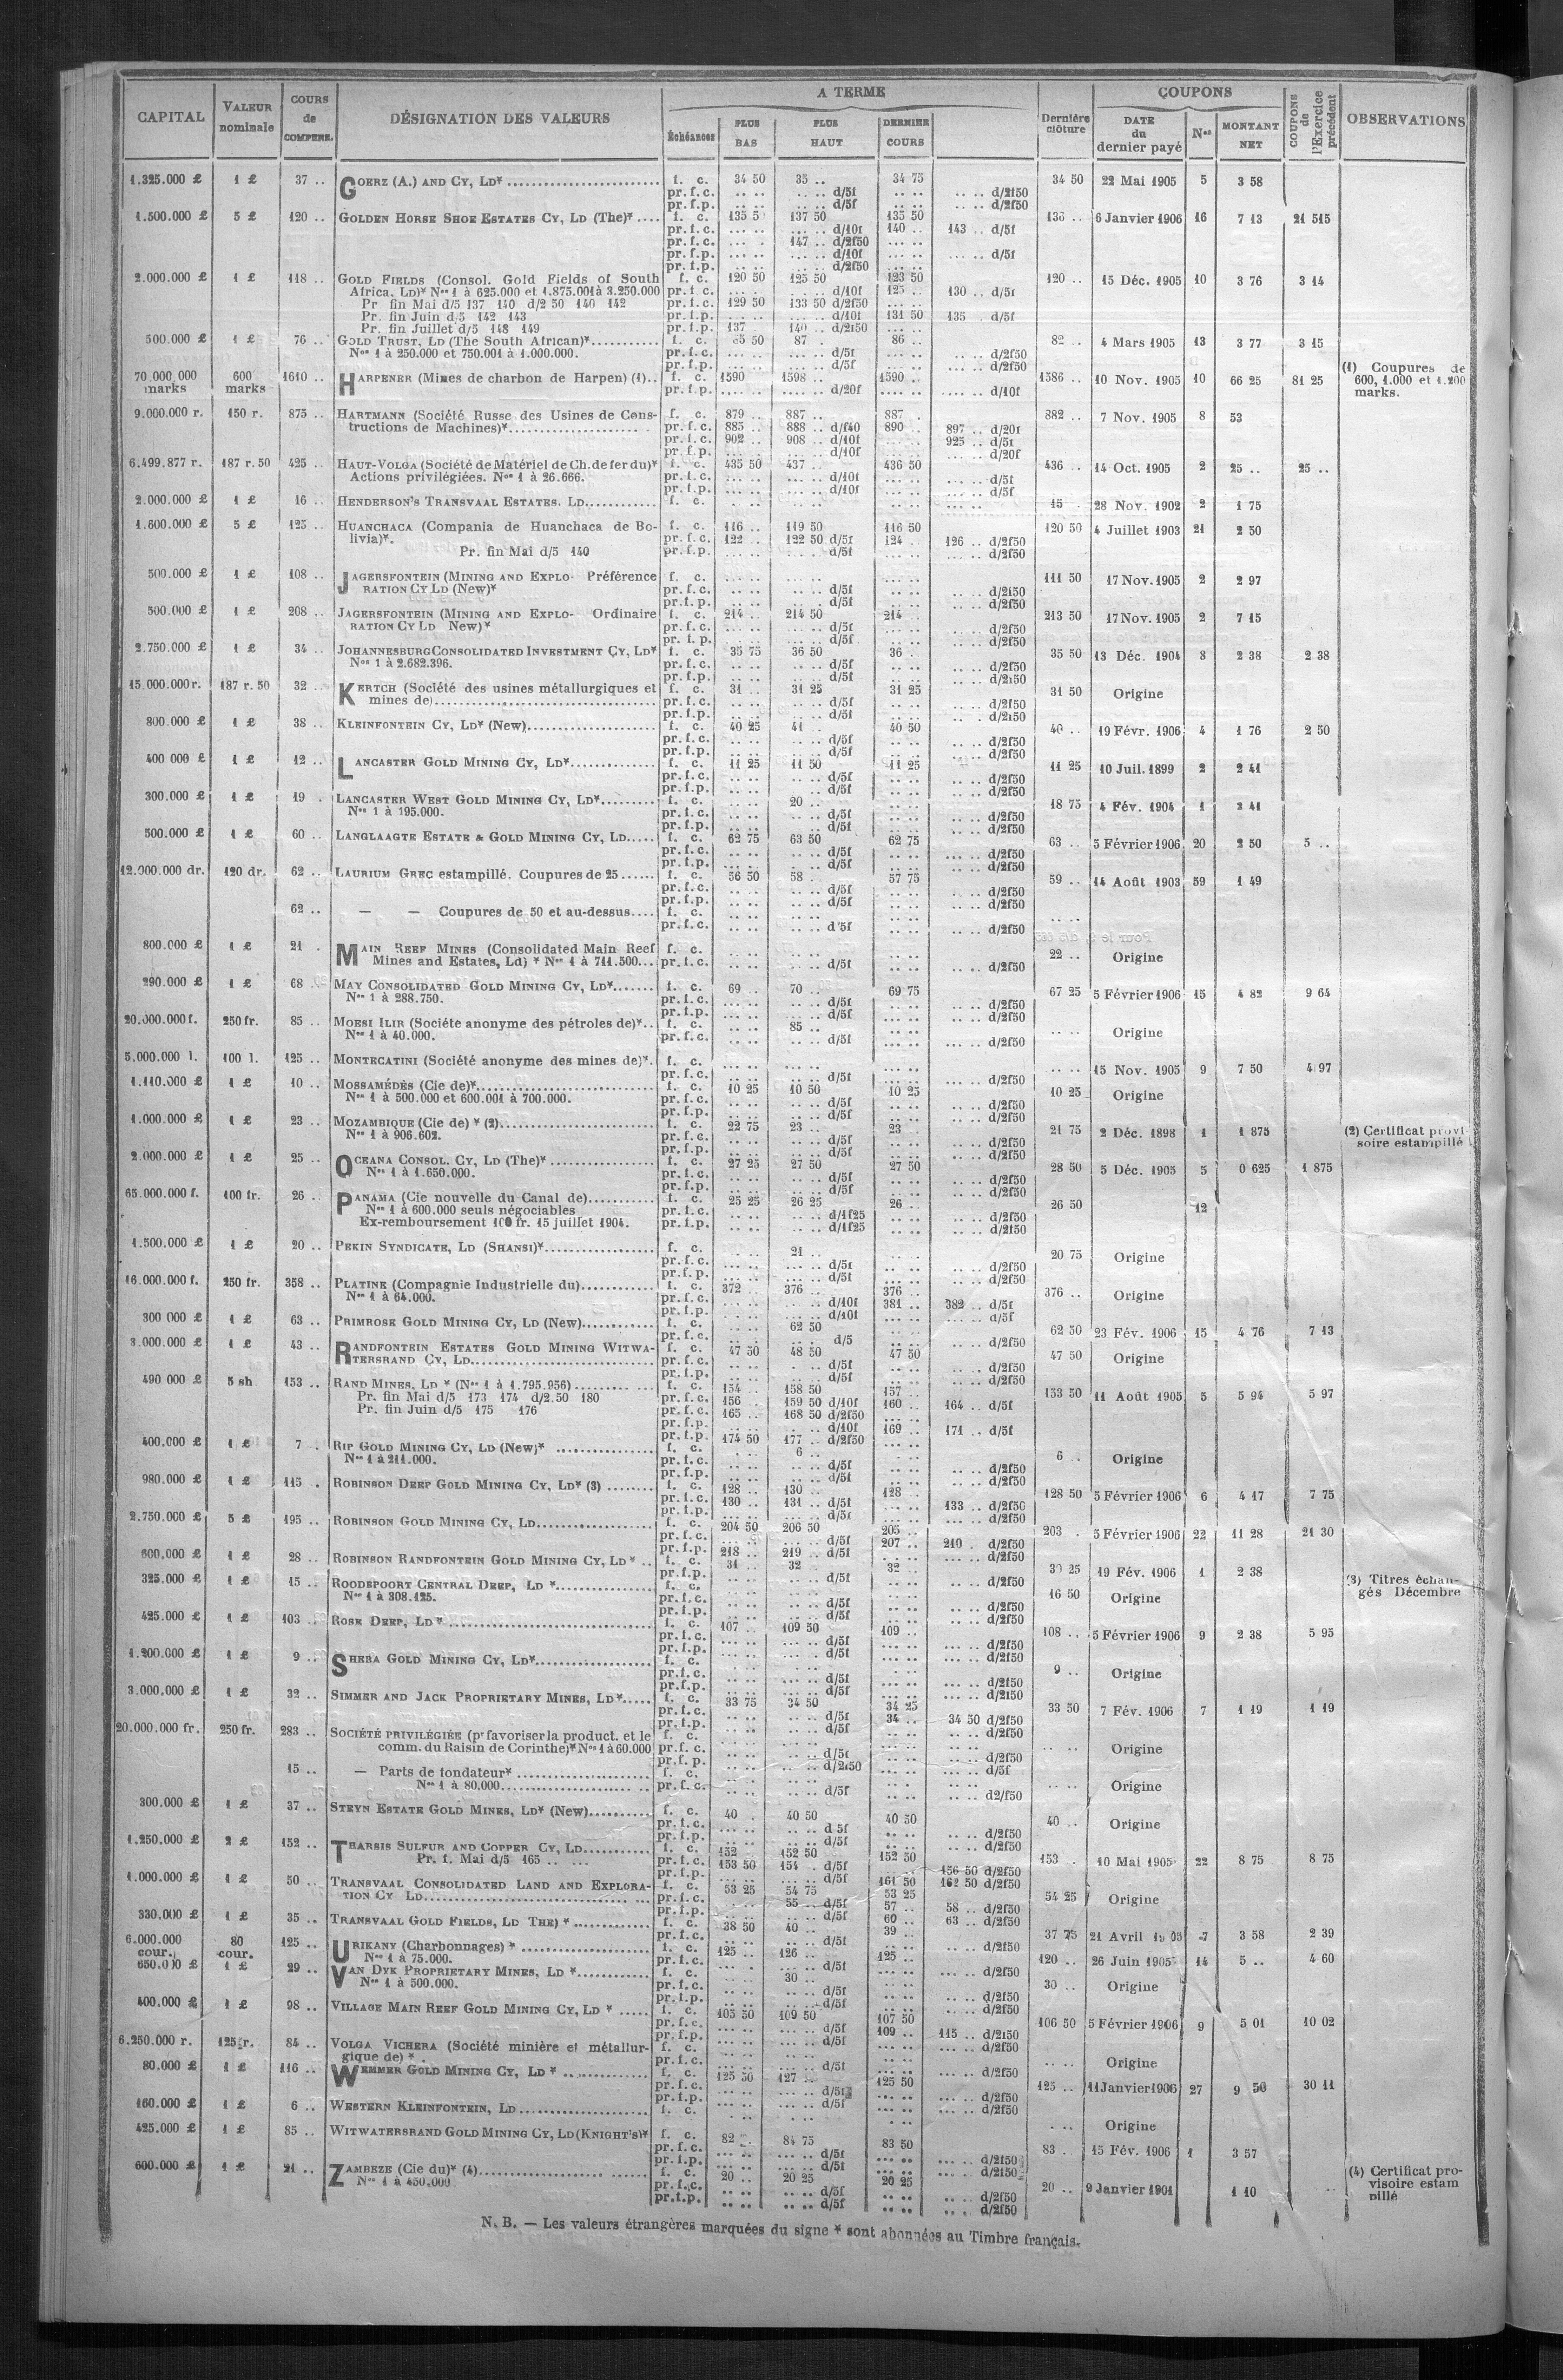 CAPITAL | VALEUR nominale | COURS de COMPENS. | DÉSIGNATION DES VALEURS | A TERME | Dernière clôture | COUPONS | COUPONS de l'Exercice précédent | OBSERVATIONS
Échéances | PLUS BAS | PLUS HAUT | DERNIER COURS | DATE du dernier payé | Nos | MONTANT NET
1.325.000 £ | 1 £ | 37 .. | GOERZ (A.) AND CY, LD* | f. c. | 34 50 | 35 .. | 34 75 | 34 50 | 22 Mai 1905 | 5 | 3 58
pr. f. c. | .. .. | .. .. d/5f | .. .. | .. .. d/2f50
pr. f. p. | .. .. | .. .. d/5f | .. .. | .. .. d/2f50
1.500.000 £ | 5 £ | 120 .. | GOLDEN HORSE SHOE ESTATES CY, LD (The)* | f. c. | 135 5 | 137 50 | 135 50 | 136 .. | 6 Janvier 1906 | 16 | 7 13 | 21 515
pr. f. c. | ... .. | ... .. d/10f | 140 .. | 143 .. d/5f
pr. f. c. | ... . | 147 .. d/2f50 | ... ..
pr. f. p. | ... .. | ... .. d/10f | ... .. d/5f
pr. f. p. | ... .. | ... .. d/2f50
2.000.000 £ | 1 £ | 118 .. | GOLD FIELDS (Consol. Gold Fields of South | f. c. | 120 50 | 125 50 | 123 50 | 120 .. | 15 Déc. 1905 | 10 | 3 76 | 3 14
Africa, LD)* Nos 1 à 625.000 et 1.875.001 à 3.250.000 | pr. f. c. | ... . | ... .. d/10f | 125 .. | 130 .. d/5f
Pr fin Mai d/5 137 140 d/2 50 140 142 | pr. f. c. | 129 50 | 133 50 d/2f50 | ... ..
Pr. fin Juin d/5 142 143 | pr. f. p. | ... .. | ... .. d/10f | 131 50 | 135 . d/5f
Pr. fin Juillet d/5 148 149 | pr. f. p. | 137 | 140 .. d/2f50 | ... ..
500.000 £ | 1 £ | 76 .. | GOLD TRUST, LD (The South African)* | f. c. | 85 50 | 87 . | 86 .. | 82 .. | 4 Mars 1905 | 13 | 3 77 | 3 15
Nos 1 à 250.000 et 750.001 à 1.000.000. | pr. f. c. | ... .. | ... .. d/5f | ... .. | .. .. d/2f50
pr. f. p. | ... .. | ... .. d/5f | ... .. | .. .. d/2f50
70.000.000 marks | 600 marks | 1610 .. | HARPENER (Mines de charbon de Harpen) (1).. | f. c. | 1590 | 1598 .. | 1590 .. | 1586 .. | 10 Nov. 1905 | 10 | 66 25 | 81 25 | (1) Coupures de 600, 1.000 et 1.200 marks.
pr. f. p. | .... .. | .... .. d/20f | .... .. | .... .. d/10f
9.000.000 r. | 150 r. | 875 .. | HARTMANN (Société Russe des Usines de Cons- | f. c. | 879 .. | 887 .. | 887 . | 882 .. | 7 Nov. 1905 | 8 | 53
tructions de Machines)* | pr. f. c. | 885 .. | 888 .. d/f40 | 890 .. | 897 .. d/20f
pr. f. c. | 902 .. | 908 .. d/10f | 925 .. d/5f
pr. f. p. | ... .. | .. d/10f | .. d/20f
6.499.877 r. | 187 r. 50 | 425 .. | HAUT-VOLGA (Société de Matériel de Ch. de fer du)* | f. c. | 435 50 | 437 .. | 436 50 | 436 .. | 14 Oct. 1905 | 2 | 25 .. | 25 ..
Actions privilégiées. Nos 1 à 26.666. | pr. f. c. | ... .. | ... .. d/10f | ... .. d/5f
pr. f. p. | ... .. | ... .. d/10f | ... .. d/5f
2.000.000 £ | 1 £ | 16 .. | HENDERSON'S TRANSVAAL ESTATES, LD | f. c. | .. .. | .. .. | .. .. | 15 . | 28 Nov. 1902 | 2 | 1 75
1.600.000 £ | 5 £ | 125 .. | HUANCHACA (Compania de Huanchaca de Bo- | f. c. | 116 .. | 119 50 | 116 50 | 120 50 | 4 Juillet 1903 | 21 | 2 50
livia)*. | pr. f. c. | 122 .. | 122 50 d/5f | 124 . | 126 .. d/2f50
Pr. fin Mai d/5 140 | pr. f. p. | ... .. | ... . d/5f | ... .. | ... .. d/2f50
500.000 £ | 1 £ | 108 .. | JAGERSFONTEIN (MINING AND EXPLO- Préférence | f. c. | ... .. | ... .. | ... .. | 111 50 | 17 Nov. 1905 | 2 | 2 97
RATION CY LD (New)* | pr. f. c. | ... .. | ... .. d/5f | ... .. | .. .. d/2f50
pr. f. p. | ... .. | .. .. d/5f | ... .. | .. .. d/2f50
500.000 £ | 1 £ | 208 .. | JAGERSFONTEIN (MINING AND EXPLO- Ordinaire | f. c. | 214 .. | 214 50 | 214 . | 213 50 | 17 Nov. 1905 | 2 | 7 15
RATION CY LD New)* | pr. f. c. | ... .. | .. .. d/5f | ... .. | .. .. d/2f50
pr. f. p. | ... .. | .. .. d/5f | ... .. | .. .. d/2f50
2.750.000 £ | 1 £ | 34 .. | JOHANNESBURG CONSOLIDATED INVESTMENT CY, LD* | f. c. | 35 75 | 36 50 | 36 . | 35 50 | 13 Déc. 1904 | 3 | 2 38 | 2 38
Nos 1 à 2.682.396. | pr. f. c. | .. .. | .. .. d/5f | .. .. | .. .. d/2f50
pr. f. p. | .. .. | .. .. d/5f | .. .. | .. .. d/2f50
15.000.000 r. | 187 r. 50 | 32 .. | KERTCH (Société des usines métallurgiques et | f. c. | 31 .. | 31 25 | 31 25 | 31 50 | Origine
mines de) | pr. f. c. | .. .. | .. .. d/5f | .. .. | .. .. d/2f50
pr. f. p. | .. .. | .. .. d/5f | .. .. | .. .. d/2f50
800.000 £ | 1 £ | 38 .. | KLEINFONTEIN CY, LD* (New) | f. c. | 40 25 | 41 . | 40 50 | 40 .. | 19 Févr. 1906 | 4 | 1 76 | 2 50
pr. f. c. | .. .. | .. .. d/5f | .. .. | .. .. d/2f50
pr. f. p. | .. .. | .. .. d/5f | .. .. | .. .. d/2f50
400 000 £ | 1 £ | 12 .. | LANCASTER GOLD MINING CY, LD* | f. c. | 11 25 | 11 50 | 11 25 | 11 25 | 10 Juil. 1899 | 2 | 2 41
pr. f. c. | .. .. | .. .. d/5f | .. .. | .. .. d/2f50
pr. f. p. | .. .. | .. .. d/5f | .. .. | .. .. d/2f50
300.000 £ | 1 £ | 19 . | LANCASTER WEST GOLD MINING CY, LD* | f. c. | .. .. | 20 .. | .. .. | 18 75 | 4 Fév. 1904 | 1 | 2 41
Nos 1 à 195.000. | pr. f. c. | .. .. | .. .. d/5f | .. .. | .. .. d/2f50
pr. f. p. | .. .. | .. .. d/5f | .. .. | .. .. d/2f50
500.000 £ | 1 £ | 60 .. | LANGLAAGTE ESTATE & GOLD MINING CY, LD | f. c. | 62 75 | 63 50 | 62 75 | 63 .. | 5 Février 1906 | 20 | 2 50 | 5 ..
pr. f. c. | .. .. | .. .. d/5f | .. .. | ... .. d/2f50
pr. f. p. | .. .. | .. .. d/5f | .. .. | ... .. d/2f50
12.000.000 dr. | 120 dr. | 62 .. | LAURIUM GREC estampillé. Coupures de 25 | f. c. | 56 50 | 58 .. | 57 75 | 59 .. | 14 Août 1903 | 59 | 1 49
pr. f. c. | .. .. | .. .. d/5f | .. .. | .. .. d/2f50
pr. f. p. | .. .. | .. .. d/5f | .. .. | .. .. d/2f50
62 .. | — — Coupures de 50 et au-dessus | f. c. | .. .. | .. .. | .. .. | .. ..
pr. f. c. | .. .. | .. .. d'5f | .. .. | .. .. d/2f50
800.000 £ | 1 £ | 21 . | MAIN REEF MINES (Consolidated Main Reef | f. c. | 22 .. | Origine
Mines and Estates, Ld) * Nos 1 à 711.500 | pr. f. c. | .. .. | .. .. d/5f | .. .. | .. .. d/2f50
290.000 £ | 1 £ | 68 .. | MAY CONSOLIDATED GOLD MINING CY, LD* | f. c. | 69 .. | 70 .. | 69 75 | 67 25 | 5 Février 1906 | 15 | 4 82 | 9 64
Nos 1 à 288.750. | pr. f. c. | ... .. | ... .. d/5f | ... .. | ... .. d/2f50
pr. f. p. | ... .. | ... .. d/5f | ... .. | ... .. d/2f50
20.000.000 f. | 250 fr. | 85 .. | MOESI ILIR (Sociéte anonyme des pétroles de)* | f. c. | .. .. | 85 .. | .. .. | Origine
Nos 1 à 40.000. | pr. f. c. | .. .. | .. .. d/5f | ... .. | ... .. d/2f50
5.000.000 l. | 100 l. | 125 .. | MONTECATINI (Société anonyme des mines de)*. | f. c. | ... .. | ... .. | ... .. | ... .. | 15 Nov. 1905 | 9 | 7 50 | 4 97
pr. f. c. | ... .. | ... .. d/5f | ... .. | ... .. d/2f50
1.110.000 £ | 1 £ | 10 .. | MOSSAMÉDÈS (Cie de)* | f. c. | 10 25 | 10 50 | 10 25 | 10 25 | Origine
Nos 1 à 500.000 et 600.001 à 700.000. | pr. f. c. | .. .. | .. .. d/5f | .. .. | .. .. d/2f50
pr. f. p. | .. .. | .. .. d/5f | .. .. | .. .. d/2f50
1.000.000 £ | 1 £ | 23 .. | MOZAMBIQUE (Cie de) * (2) | f. c. | 22 75 | 23 .. | 23 .. | 21 75 | 2 Déc. 1898 | 1 | 1 875 | (2) Certificat provisoire estampillé
Nos 1 à 906.602. | pr. f. c. | .. .. | .. .. d/5f | .. .. | .. .. d/2f50
pr. f. p. | .. .. | .. .. d/5f | .. .. | .. .. d/2f50
2.000.000 £ | 1 £ | 25 .. | OCEANA CONSOL. CY, LD (The)* | f. c. | 27 25 | 27 50 | 27 50 | 28 50 | 5 Déc. 1905 | 5 | 0 625 | 1 875
Nos 1 à 1.650.000. | pr. f. c. | .. .. | .. .. d/5f | .. .. | .. .. d/2f50
pr. f. p. | .. .. | .. .. d/5f | .. .. | .. .. d/2f50
65.000.000 f. | 100 fr. | 26 .. | PANAMA (Cie nouvelle du Canal de) | f. c. | 25 25 | 26 25 | 26 .. | 26 50 | 12
Nos 1 à 600.000 seuls négociables | pr. f. c. | .. .. | .. .. d/1f25 | .. .. | .. .. d/2f50
Ex-remboursement 100 fr. 15 juillet 1904. | pr. f. p. | .. .. | .. .. d/1f25 | .. .. | .. .. d/2f50
1.500.000 £ | 1 £ | 20 .. | PEKIN SYNDICATE, LD (SHANSI)* | f. c. | .. .. | 21 .. | .. .. | 20 75 | Origine
pr. f. c. | .. .. | .. .. d/5f | .. .. | .. .. d/2f50
pr. f. p. | .. .. | .. .. d/5f | .. .. | .. .. d/2f50
16.000.000 f. | 250 fr. | 358 .. | PLATINE (Compagnie Industrielle du) | f. c. | 372 .. | 376 .. | 376 .. | 376 .. | Origine
Nos 1 à 64.000. | pr. f. c. | ... .. | ... .. d/10f | 381 .. | 382 .. d/5f
pr. f. p. | ... .. | ... .. d/10f | ... .. d/5f
300 000 £ | 1 £ | 63 .. | PRIMROSE GOLD MINING CY, LD (New) | f. c. | .. .. | 62 50 | .. .. | 62 50 | 23 Fév. 1906 | 15 | 4 76 | 7 13
pr. f. c. | .. .. | .. .. d/5 | .. .. | .. .. d/2f50
3.000.000 £ | 1 £ | 43 .. | RANDFONTEIN ESTATES GOLD MINING WITWA- | f. c. | 47 50 | 48 50 | 47 50 | 47 50 | Origine
TERSRAND CY, LD | pr. f. c. | .. .. | .. .. d/5f | .. .. | .. .. d/2f50
pr. f. p. | .. .. | .. .. d/5f | .. .. | .. .. d/2f50
490 000 £ | 5 sh | 153 .. | RAND MINES, LD * (Nos 1 à 1.795.956) | f. c. | 154 .. | 158 50 | 157 .. | 153 50 | 11 Août 1905 | 5 | 5 94 | 5 97
Pr. fin Mai d/5 173 174 d/2.50 180 | pr. f. c. | 156 . | 159 50 d/10f | 160 .. | 164 .. d/5f
Pr. fin Juin d/5 175 176 | pr. f. c. | 165 .. | 168 50 d/2f50 | ... ..
pr. f. p. | ... .. | .. d/10f | 169 .. | 171 .. d/5f
pr. f. p. | 174 50 | 177 . d/2f50 | ... ..
400.000 £ | 1 £ | 7 . | RIP GOLD MINING CY, LD (New)* | f. c. | .. .. | 6 .. | .. .. | 6 .. | Origine
Nos 1 à 211.000. | pr. f. c. | .. .. | .. .. d/5f | .. .. | .. .. d/2f50
pr. f. p. | .. .. | .. .. d/5f | .. .. | .. .. d/2f50
980.000 £ | 1 £ | 115 . | ROBINSON DEEP GOLD MINING CY, LD* (3) | f. c. | 128 .. | 130 .. | 128 .. | 128 50 | 5 Février 1906 | 6 | 4 17 | 7 75
pr. f. c. | 130 .. | 131 .. d/5f | ... .. | 133 .. d/2f50
pr. f. p. | ... .. | ... .. d/5f | ... .. | ... .. d/2f50
2.750.000 £ | 5 £ | 195 .. | ROBINSON GOLD MINING CY, LD | f. c. | 204 50 | 206 50 | 205 .. | 203 . | 5 Février 1906 | 22 | 11 28 | 21 30
pr. f. c. | ... .. | ... .. d/5f | 207 .. | 210 . d/2f50
pr. f. p. | 218 .. | 219 .. d/5f | ... .. | ... .. d/2f50
600.000 £ | 1 £ | 28 .. | ROBINSON RANDFONTEIN GOLD MINING CY, LD * | f. c. | 31 .. | 32 .. | 32 .. | 30 25 | 19 Fév. 1906 | 1 | 2 38
pr. f. p. | .. .. | .. .. d/5f | .. .. | .. .. d/2f50
325.000 £ | 1 £ | 15 .. | ROODEPOORT CENTRAL DEEP, LD * | f. c. | .. .. | .. .. | .. .. | 16 50 | Origine | (3) Titres échangés Décembre
Nos 1 à 308.125. | pr. f. c. | .. .. | .. .. d/5f | .. .. | .. .. d/2f50
pr. f. p. | .. .. | .. .. d/5f | .. .. | .. .. d/2f50
425.000 £ | 1 £ | 103 .. | ROSE DEEP, LD * | f. c. | 107 .. | 109 50 | 109 .. | 108 .. | 5 Février 1906 | 9 | 2 38 | 5 95
pr. f. c. | ... .. | ... .. d/5f | ... .. | ... .. d/2f50
pr. f. p. | ... .. | ... .. d/5f | ... .. | ... .. d/2f50
1.200.000 £ | 1 £ | 9 .. | SHEBA GOLD MINING CY, LD* | f. c. | .. .. | .. .. | .. .. | 9 .. | Origine
pr. f. c. | .. .. | .. .. d/5f | .. .. | .. .. d/2f50
pr. f. p. | .. .. | .. .. d/5f | .. .. | .. .. d/2f50
3.000.000 £ | 1 £ | 32 .. | SIMMER AND JACK PROPRIETARY MINES, LD* | f. c. | 33 75 | 34 50 | 34 25 | 33 50 | 7 Fév. 1906 | 7 | 1 19 | 1 19
pr. f. c. | .. .. | .. .. d/5f | 34 .. | 34 50 d/2f50
pr. f. p. | .. .. | .. .. d/5f | .. .. | .. .. d/2f50
20.000.000 fr. | 250 fr. | 283 .. | SOCIÉTÉ PRIVILÉGIÉE (pr favoriser la product. et le | f. c. | .. .. | .. .. | .. .. | .. .. | Origine
comm. du Raisin de Corinthe)* Nos 1 à 60.000 | pr. f. c. | .. .. | .. .. d/5f | .. .. | .. .. d/2f50
pr. f. p. | .. .. | .. .. d/2f50 | .. .. | .. .. d/5f
15 .. | — Parts de fondateur* | f. c. | .. .. | .. .. | .. .. | .. .. | Origine
Nos 1 à 80.000 | pr. f. c. | .. .. | .. .. d/5f | .. .. | d2/f50
300.000 £ | 1 £ | 37 .. | STEYN ESTATE GOLD MINES, LD* (New) | f. c. | 40 . | 40 50 | 40 50 | 40 .. | Origine
pr. f. c. | .. .. | .. .. d 5f | .. .. | .. .. d/2f50
pr. f. p. | .. .. | .. .. d/5f | .. .. | .. .. d/2f50
1.250.000 £ | 2 £ | 152 .. | THARSIS SULFUR AND COPPER CY, LD | f. c. | 152 .. | 152 50 | 152 50 | 153 . | 10 Mai 1905 | 22 | 8 75 | 8 75
Pr. f. Mai d/5 165 .. ... | pr. f. c. | 153 50 | 154 . d/5f | ... .. | 156 50 d/2f50
pr. f. p. | ... .. | ... .. d/5f | 161 50 | 162 50 d/2f50
1.000.000 £ | 1 £ | 50 .. | TRANSVAAL CONSOLIDATED LAND AND EXPLORA- | f. c. | 53 25 | 54 75 | 53 25 | 54 25 | Origine
TION CY LD | pr. f. c. | .. .. | 55 .. d/5f | 57 .. | 58 .. d/2f50
pr. f. p. | .. .. | .. .. d/5f | 60 .. | 63 .. d/2f50
330.000 £ | 1 £ | 35 .. | TRANSVAAL GOLD FIELDS, LD THE) * | f. c. | 38 50 | 40 .. | 39 .. | 37 75 | 21 Avril 1905 | 7 | 3 58 | 2 39
pr. f. c. | .. .. | .. .. d/5f | .. .. | .. .. d/2f50
6.000.000 cour. | 80 cour. | 125 .. | URIKANY (Charbonnages) * | f. c. | 125 .. | 126 .. | 125 .. | 120 .. | 26 Juin 1905 | 14 | 5 .. | 4 60
Nos 1 à 75.000. | pr. f. c. | ... . | ... .. d/5f | ... .. | ... .. d/2f50
650.000 £ | 1 £ | 29 .. | VAN DYK PROPRIETARY MINES, LD * | f. c. | .. .. | 30 .. | .. .. | 30 .. | Origine
Nos 1 à 500.000. | pr. f. c. | .. .. | .. .. d/5f | .. .. | .. .. d/2f50
pr. f. p. | .. .. | .. .. d/5f | .. .. | .. .. d/2f50
400.000 £ | 1 £ | 98 .. | VILLAGE MAIN REEF GOLD MINING CY, LD * | f. c. | 105 50 | 109 50 | 107 50 | 106 50 | 5 Février 1906 | 9 | 5 01 | 10 02
pr. f. c. | ... .. | ... .. d/5f | 109 .. | 115 .. d/2f50
pr. f. p. | ... .. | ... .. d/5f | ... .. | ... .. d/2f50
6.250.000 r. | 125 r. | 84 .. | VOLGA VICHERA (Société minière et métallur- | f. c. | .. .. | .. .. | .. .. | .. .. | Origine
gique de) * . | pr. f. c. | ... .. | ... .. d/5f | ... .. | ... .. d/2f50
80.000 £ | 1 £ | 116 .. | WEMMER GOLD MINING CY, LD * | f. c. | 125 50 | 127 .. | 125 50 | 125 .. | 11 Janvier 1906 | 27 | 9 50 | 30 11
pr. f. c. | ... .. | ... .. d/5f | ... .. | ... .. d/2f50
pr. f. p. | ... .. | ... .. d/5f | ... .. | ... .. d/2f50
160.000 £ | 1 £ | 6 .. | WESTERN KLEINFONTEIN, LD | f. c. | .. .. | .. .. | .. .. | .. .. | Origine
425.000 £ | 1 £ | 85 .. | WITWATERSRAND GOLD MINING CY, LD (KNIGHT'S)* | f. c. | 82 .. | 84 75 | 83 50 | 83 . | 15 Fév. 1906 | 1 | 3 57
pr. f. c. | ... .. | ... .. d/5f | ... .. | d/2f50
pr. f. p. | ... .. | ... .. d/5f | ... .. | d/2f50
600.000 £ | 1 £ | 21 .. | ZAMBEZE (Cie du)* (4) | f. c. | 20 .. | 20 25 | 20 25 | 20 .. | 9 Janvier 1901 | 1 10 | .. | (4) Certificat provisoire estam pillé
Nos 1 à 450.000 | pr. f. c. | .. .. | .. .. d/5f | .. .. | .. .. d/2f50
pr. f. p. | .. .. | .. .. d/5f | .. .. | .. .. d/2f50
N. B. — Les valeurs étrangères marquées du signe * sont abonnées au Timbre français.